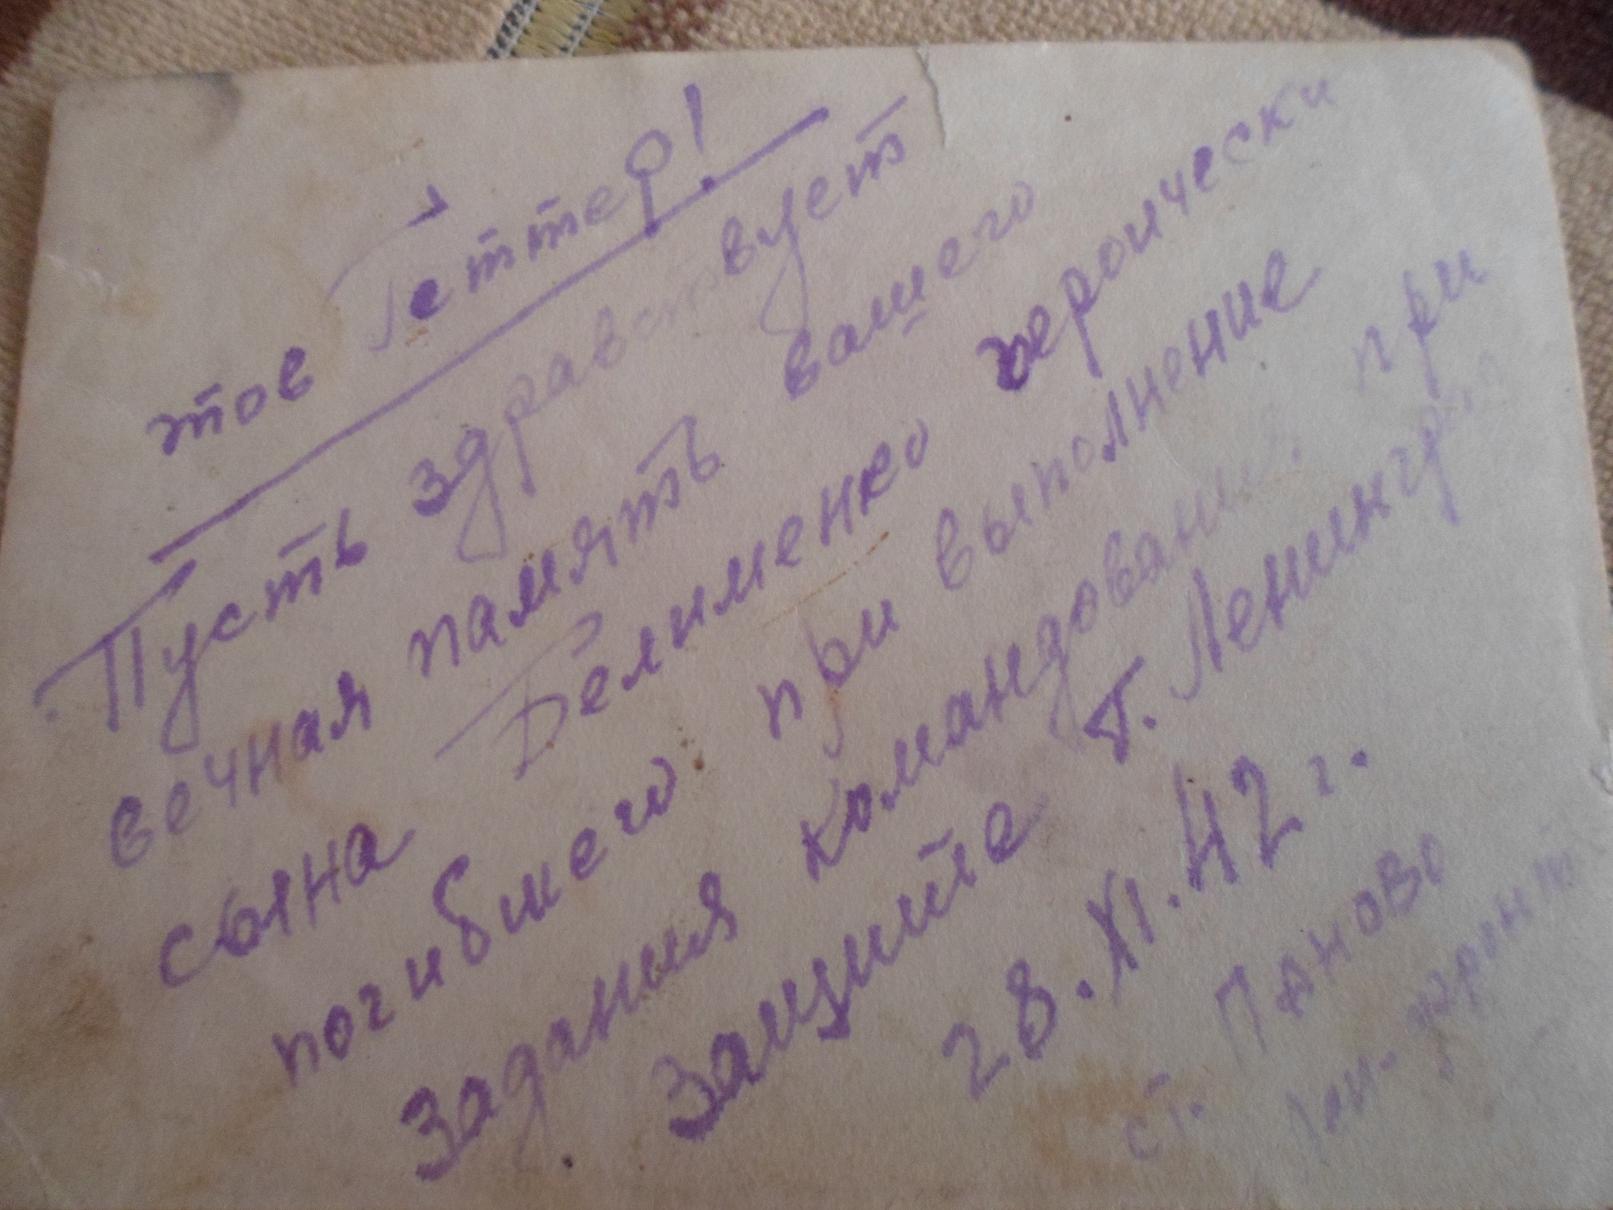 тов Геттер!
Пусть здравствует
вечная память вашего
сына Белименко героически
погибшего при выполнение
задания командования при
защите г. Ленингр
28.XI.42 г.
ст. Паново
Лен-фронт